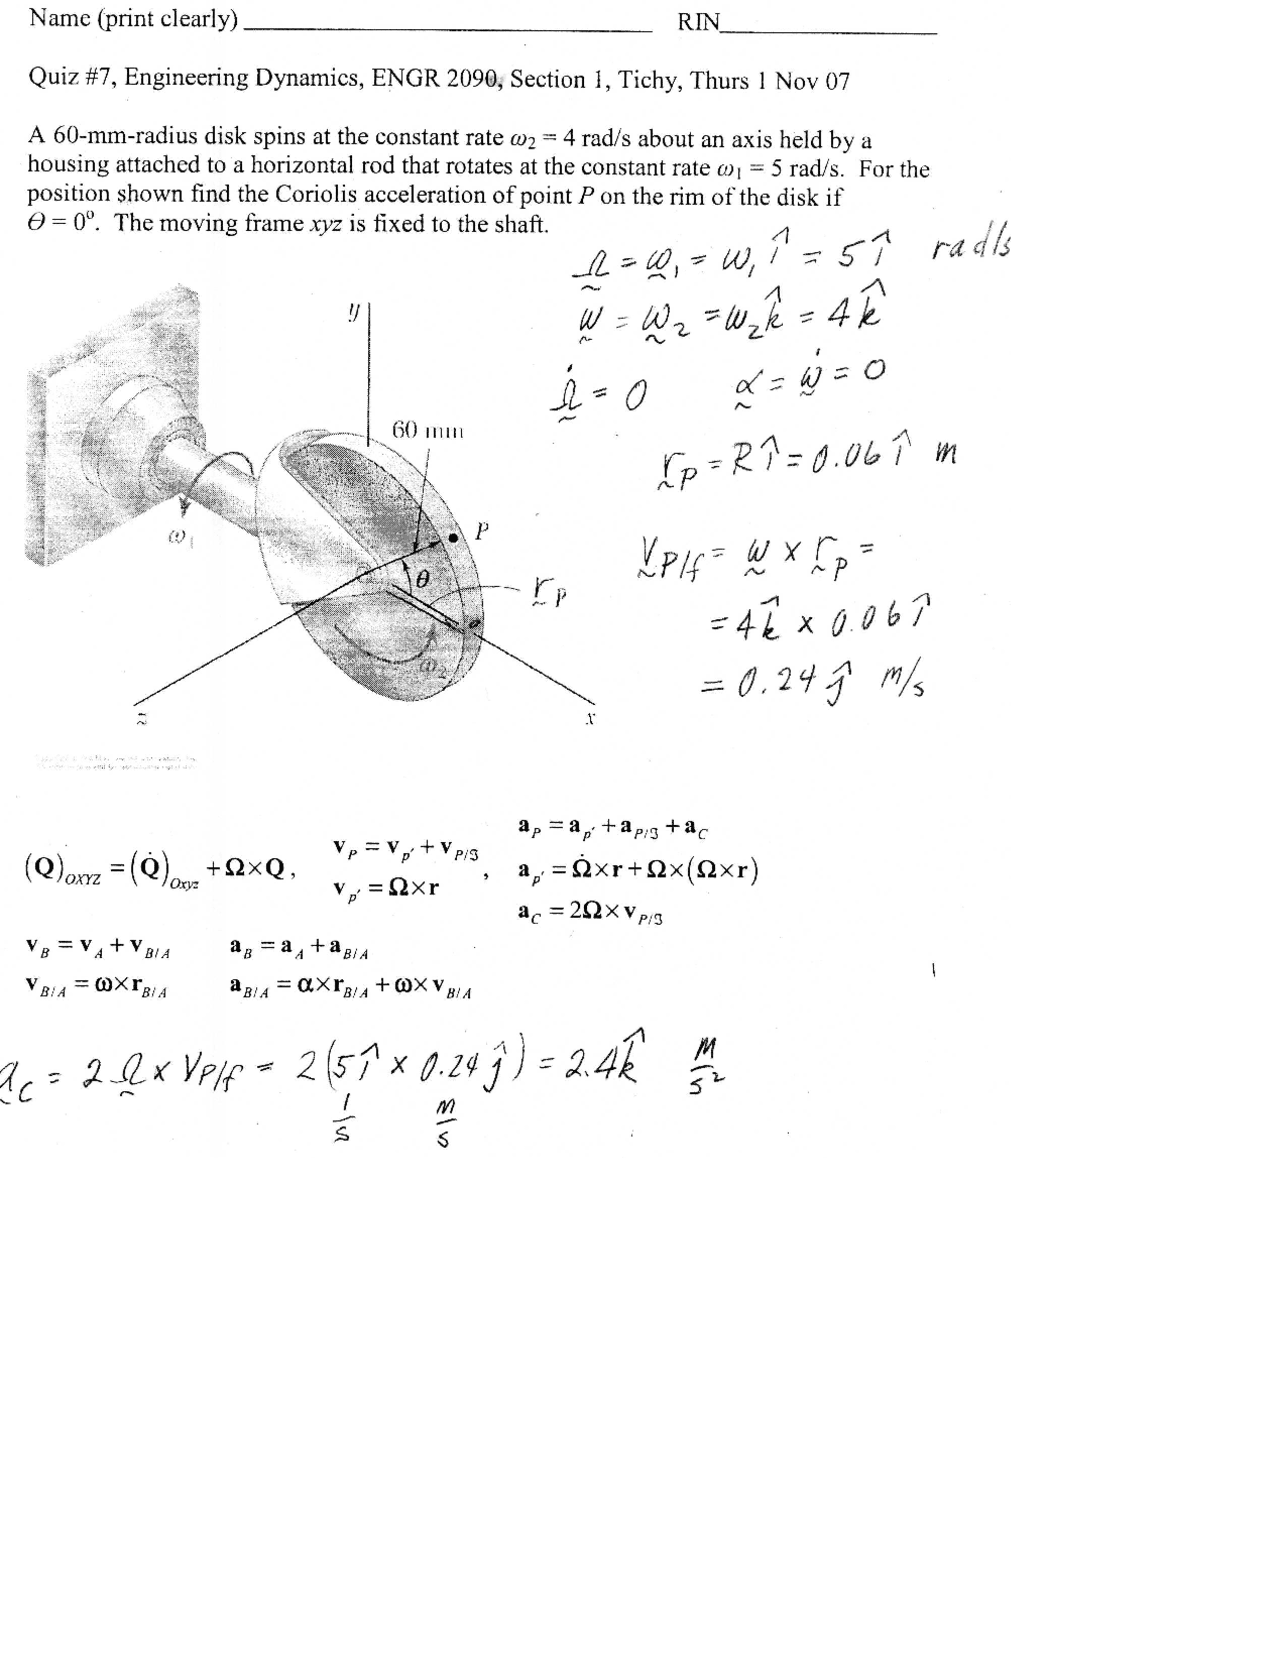 Name (print clearly) RIN
Quiz #7, Engineering Dynamics, ENGR 2090, Section 1, Tichy, Thurs 1 Nov 07
A 60-mm-radius disk spins at the constant rate ω₂ = 4 rad/s about an axis held by a
housing attached to a horizontal rod that rotates at the constant rate ω₁ = 5 rad/s. For the
position shown find the Coriolis acceleration of point P on the rim of the disk if
Θ = 0°. The moving frame xyz is fixed to the shaft.
Ω = ω₁ = ω₁ î = 5 î rad/s
ω = ω₂ = ω₂ k̂ = 4 k̂
Ω̇ = 0 α = ω̇ = 0
r_P = R î = 0.06 î m
V_P/f = ω × r_P =
= 4 k̂ × 0.06 î
= 0.24 ĵ m/s
y
60 mm
P
ω₁
θ
r_P
ω₂
z
x
(Q)_OXYZ = (Q̇)_Oxyz + Ω×Q, v_P = v_P′ + v_P/ℑ , a_P = a_P′ + a_P/ℑ + a_C
v_P′ = Ω×r a_P′ = Ω̇×r + Ω×(Ω×r)
a_C = 2Ω×v_P/ℑ
v_B = v_A + v_B/A a_B = a_A + a_B/A
v_B/A = ω×r_B/A a_B/A = α×r_B/A + ω×v_B/A
1
a_C = 2 Ω × V_P/f = 2 (5 î × 0.24 ĵ) = 2.4 k̂ m/s²
1/s m/s